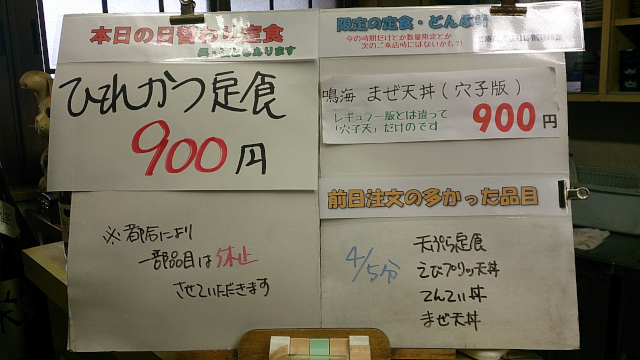 本日の日替わり定食
ひれかつ定食
900円
※都合により
一部品目は休止
させていただきます
限定の定食・どんぶり
今の時期だけとか数量限定とか
次のご来店時にはないかも?!
鳴海 まぜ天丼(穴子版)
レギュラー版とは違って
「穴子天」だけのです
900円
前日注文の多かった品目
4/5分
天ぷら定食
えびプリッ天丼
てんてぃ丼
まぜ天丼